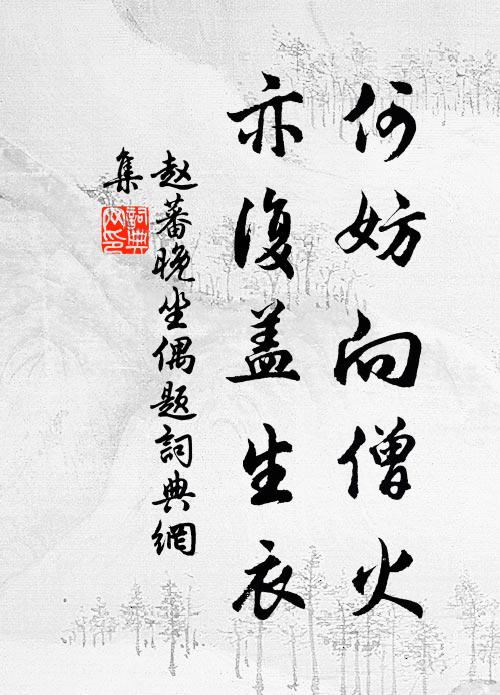 何妨向僧火
亦復盖生衣
赵蕃晚坐偶题詞典網
集
詞典網印